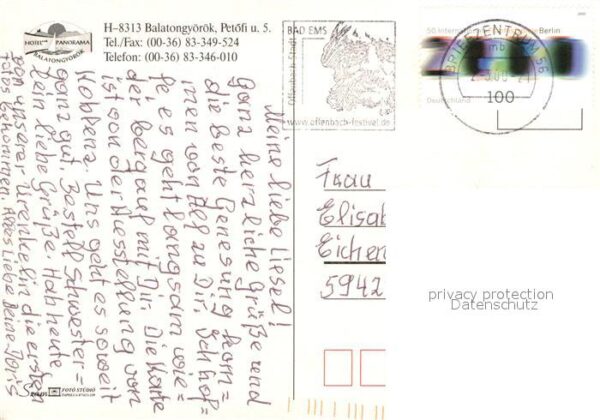 HOTEL PANORAMA
BALATONGYÖRÖK
H-8313 Balatongyörök, Petőfi u. 5.
Tel./Fax: (00-36) 83-349-524
Telefon: (00-36) 83-346-010
Meine liebe Liesel!
Ganz herzliche Grüße und
die beste Genesung kom=
men von Hof zu Dir. Ich hof=
fe, es geht langsam wie=
der bergauf mit Dir. Die Karte
ist von der Ausstellung von
Koblenz. Uns geht es soweit
ganz gut. Bestell Schwester=
lein liebe Grüße. Hab heute
von unserer Urenkelin die ersten
Fotos bekommen. Alles Liebe Deine Doris
FOTÓ STÚDIÓ
BAD EMS
Offenbach-Stadt
www.offenbach-festival.de
BRIEFZENTRUM 56
50 Internationale
Berlin
Deutschland
100
Frau
Elisab
Eichen
5942
privacy protection
Datenschutz